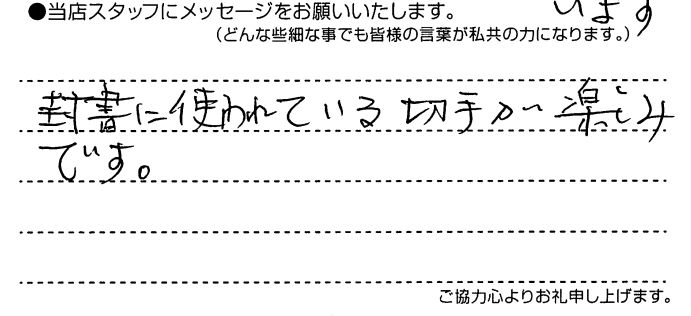 います
●当店スタッフにメッセージをお願いいたします。
（どんな些細な事でも皆様の言葉が私共の力になります。）
封書に使われている切手が楽しみ
です。
ご協力心よりお礼申し上げます。